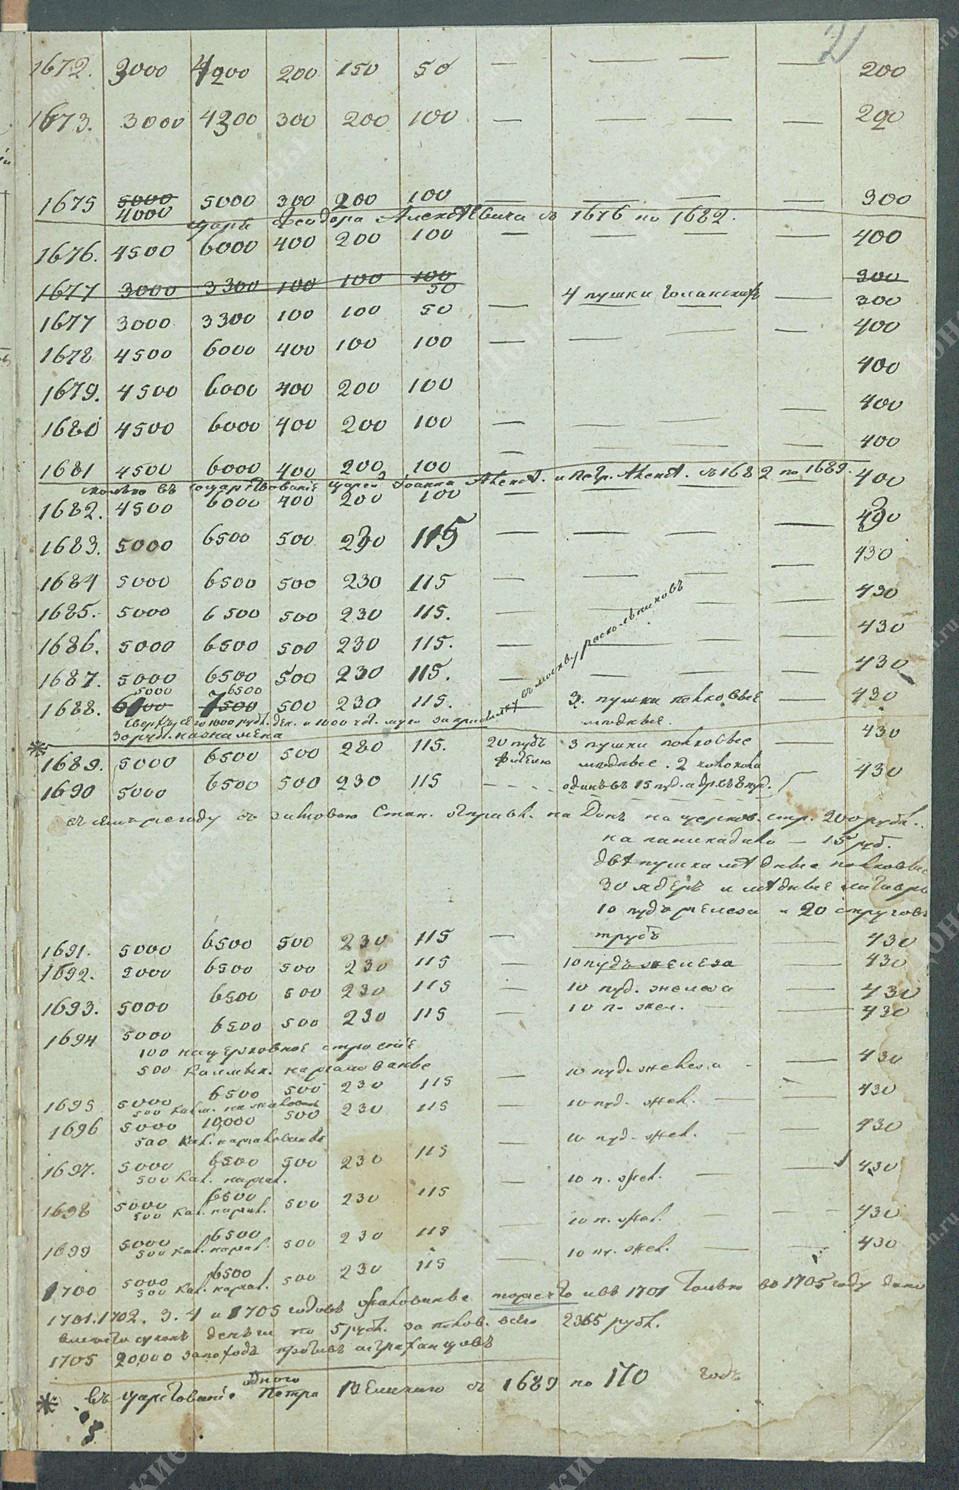 2
1672. 3000 4200 200 150 50 — — — — 200
1673. 3000 4300 300 200 100 — — — — 200
1675 5000 5000 300 200 100 — — — — 300
4000
царя Феодора Алексѣевича съ 1676 по 1682.
1676. 4500 6000 400 200 100 — — — — 400
1677 3000 3300 100 100 100 300
50 4 пушки — 300
1677 3000 3300 100 100 50 — — 400
1678 4500 6000 400 100 100 — — 400
1679. 4500 6000 400 200 100 400
1680 4500 6000 400 200 100 — — 400
1681 4500 6000 400 200 100
въ царствованіе царей Іоанна Алексѣ. и Петр. Алексѣ. съ 1682 по 1689. 400
1682. 4500 6000 400 200 100 — — — — 430
1683. 5000 6500 500 230 115 — — — — 430
1684 5000 6500 500 230 115 — — — — 430
1685. 5000 6500 500 230 115. — — — — 430
1686. 5000 6500 500 230 115. — — — — 430
1687. 5000 6500 500 230 115. — — — — 430
5000 6500
1688. 6000 7500 500 230 115. 3. пушки полковые — 430
въ москву раскольниковъ
мѣдные.
* 1689. 5000 6500 500 280 115. 20 пудъ 3 пушки полковые 430
мѣдные. 2 колокола
1690 5000 6500 500 230 115 — одинъ въ 15 пуд. а др. въ 8 пуд. 430
Стан. отправл. на Донъ на церков. стр. 200 рубл.
на паникадило — 15 руб.
двѣ пушки мѣдные полковые
30 ядеръ и мѣдные литавры
10 пудъ железа и 20 струговъ
трубъ
1691. 5000 6500 500 230 115 — — 430
1692. 5000 6500 500 230 115 — 10 пудъ железа — 430
1693. 5000 6500 500 230 115 — 10 пуд. железа — 430
1694 5000 6500 500 230 115 — 10 п. жел. — 430
100 на церковное строеніе
500 Калмык. на жалованье
1695 5000 6500 500 230 115 — 10 пуд. железа — 430
500 Кал. на жалованье
1696 5000 10,000 500 230 115 — 10 пуд. жел. 430
500 Кал. на жалованье
1697. 5000 6500 500 230 115 — 10 пуд. жел. — 430
500 Кал. на жал.
1698 5000 6500 500 230 115 — 10 п. жел. — 430
500 Кал. на жал.
1699 5000 6500 500 230 115 — 10 п. жел. — 430
500 Кал. на жал.
1700 5000 6500 500 230 115 — 10 п. жел. — 430
500 Кал. на жал.
1701. 1702. 3. 4 и 1705 годовъ жалованье тоже что и въ 1701 только въ 1705 году дано
вместо суконъ деньги по 5 рубл. за полов. всего 2365 рубл.
1705 20,000 за походъ противъ астраханцовъ
* Въ царствованіе одного Петра Великаго съ 1689 по 170 годъ